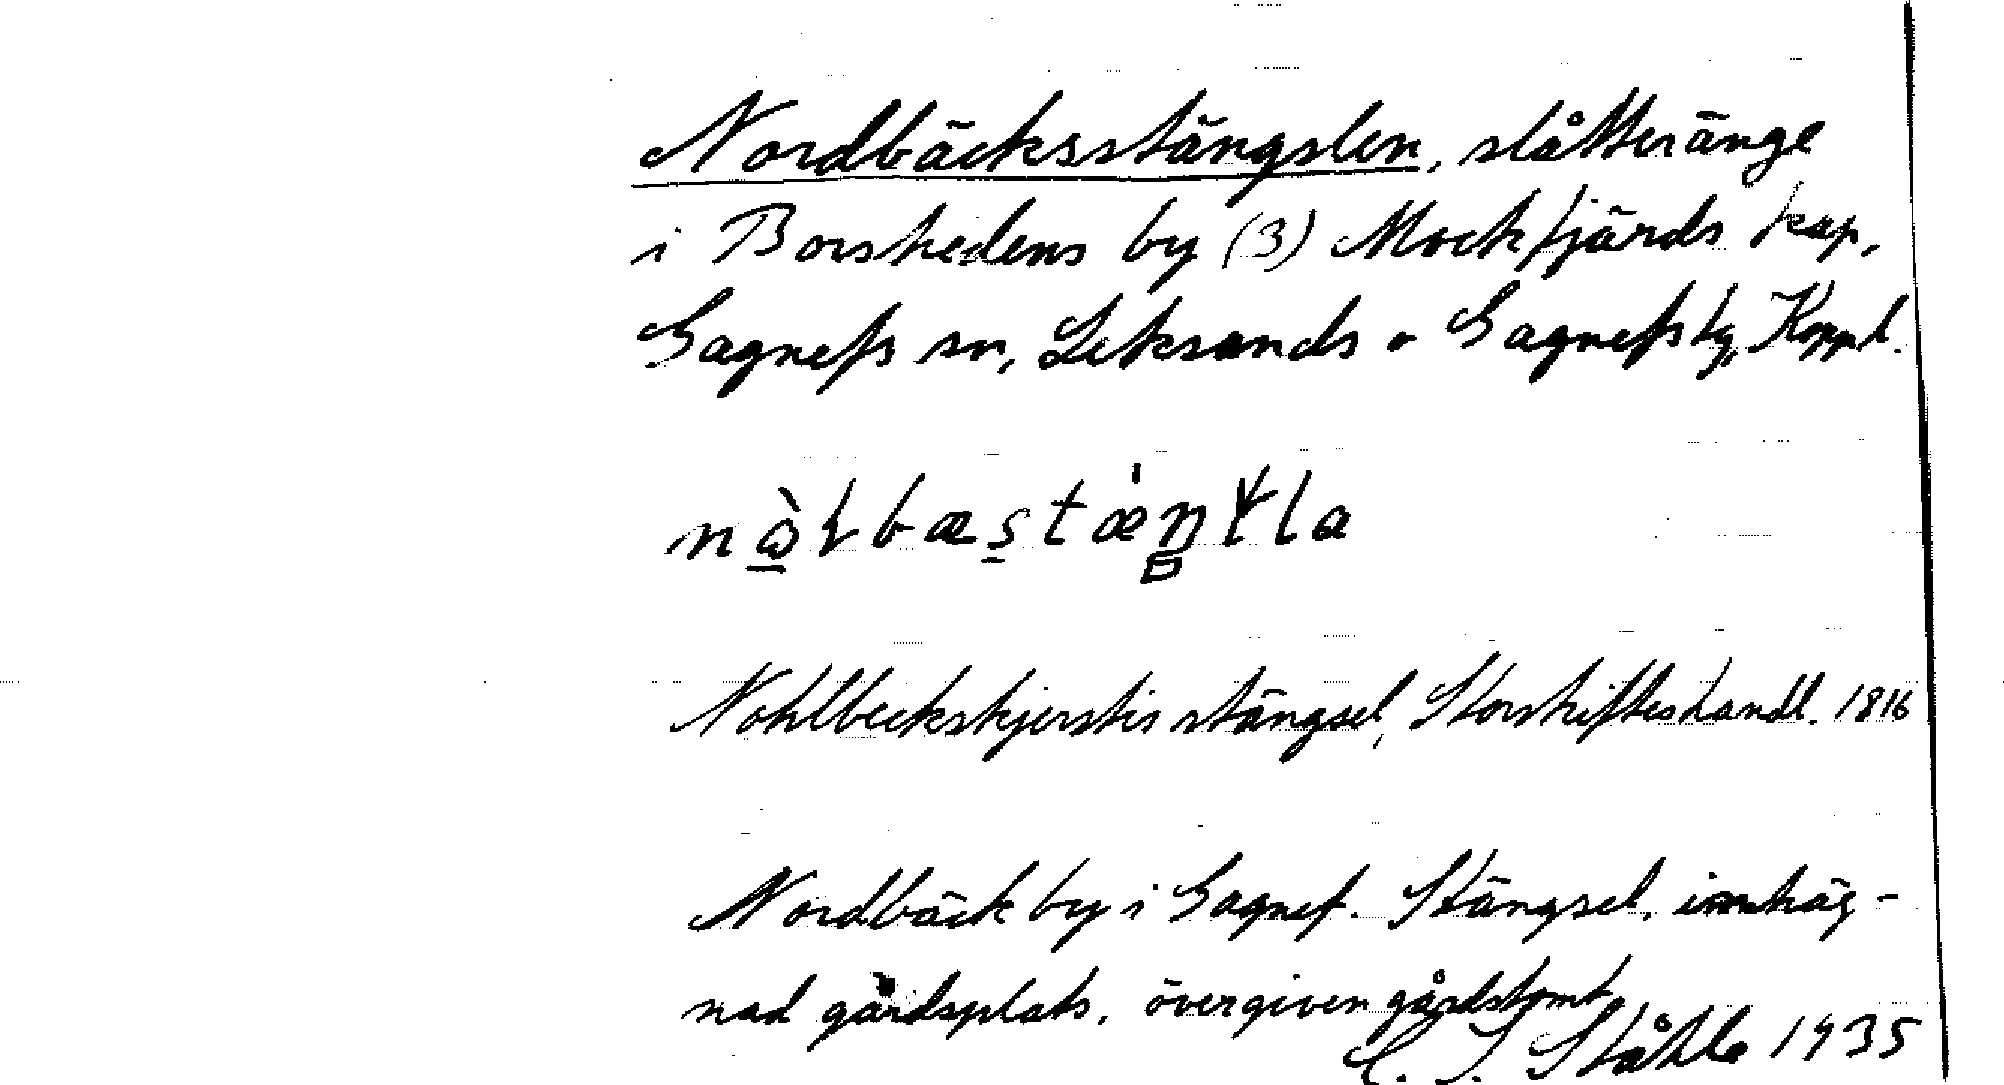 Nordbäcksstängslen, slåtteränge
i Borshedens by (3) Mockfjärds kap,
Gagnefs sn, Leksands o Gagnefs tg, Koppl.
Nohlbeckskjerstis stängsel, Storskifteshandl. 1816
Nordbäck by i Gagnef. Stängsel, inhäg-
nad gårdsplats, övergiven gårdstomt
C. I. Ståhle 1935